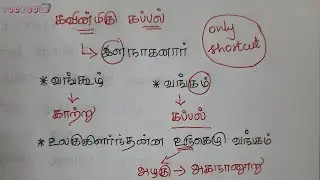 கவின்மிகு கப்பல்
only shortcut
இளநாகனார்
* வங்கூழ் * வங்கம்
காற்று கப்பல்
* உலகுகிளர்ந்தன்ன உருகெழு வங்கம்
அழகு → அகநானூறு